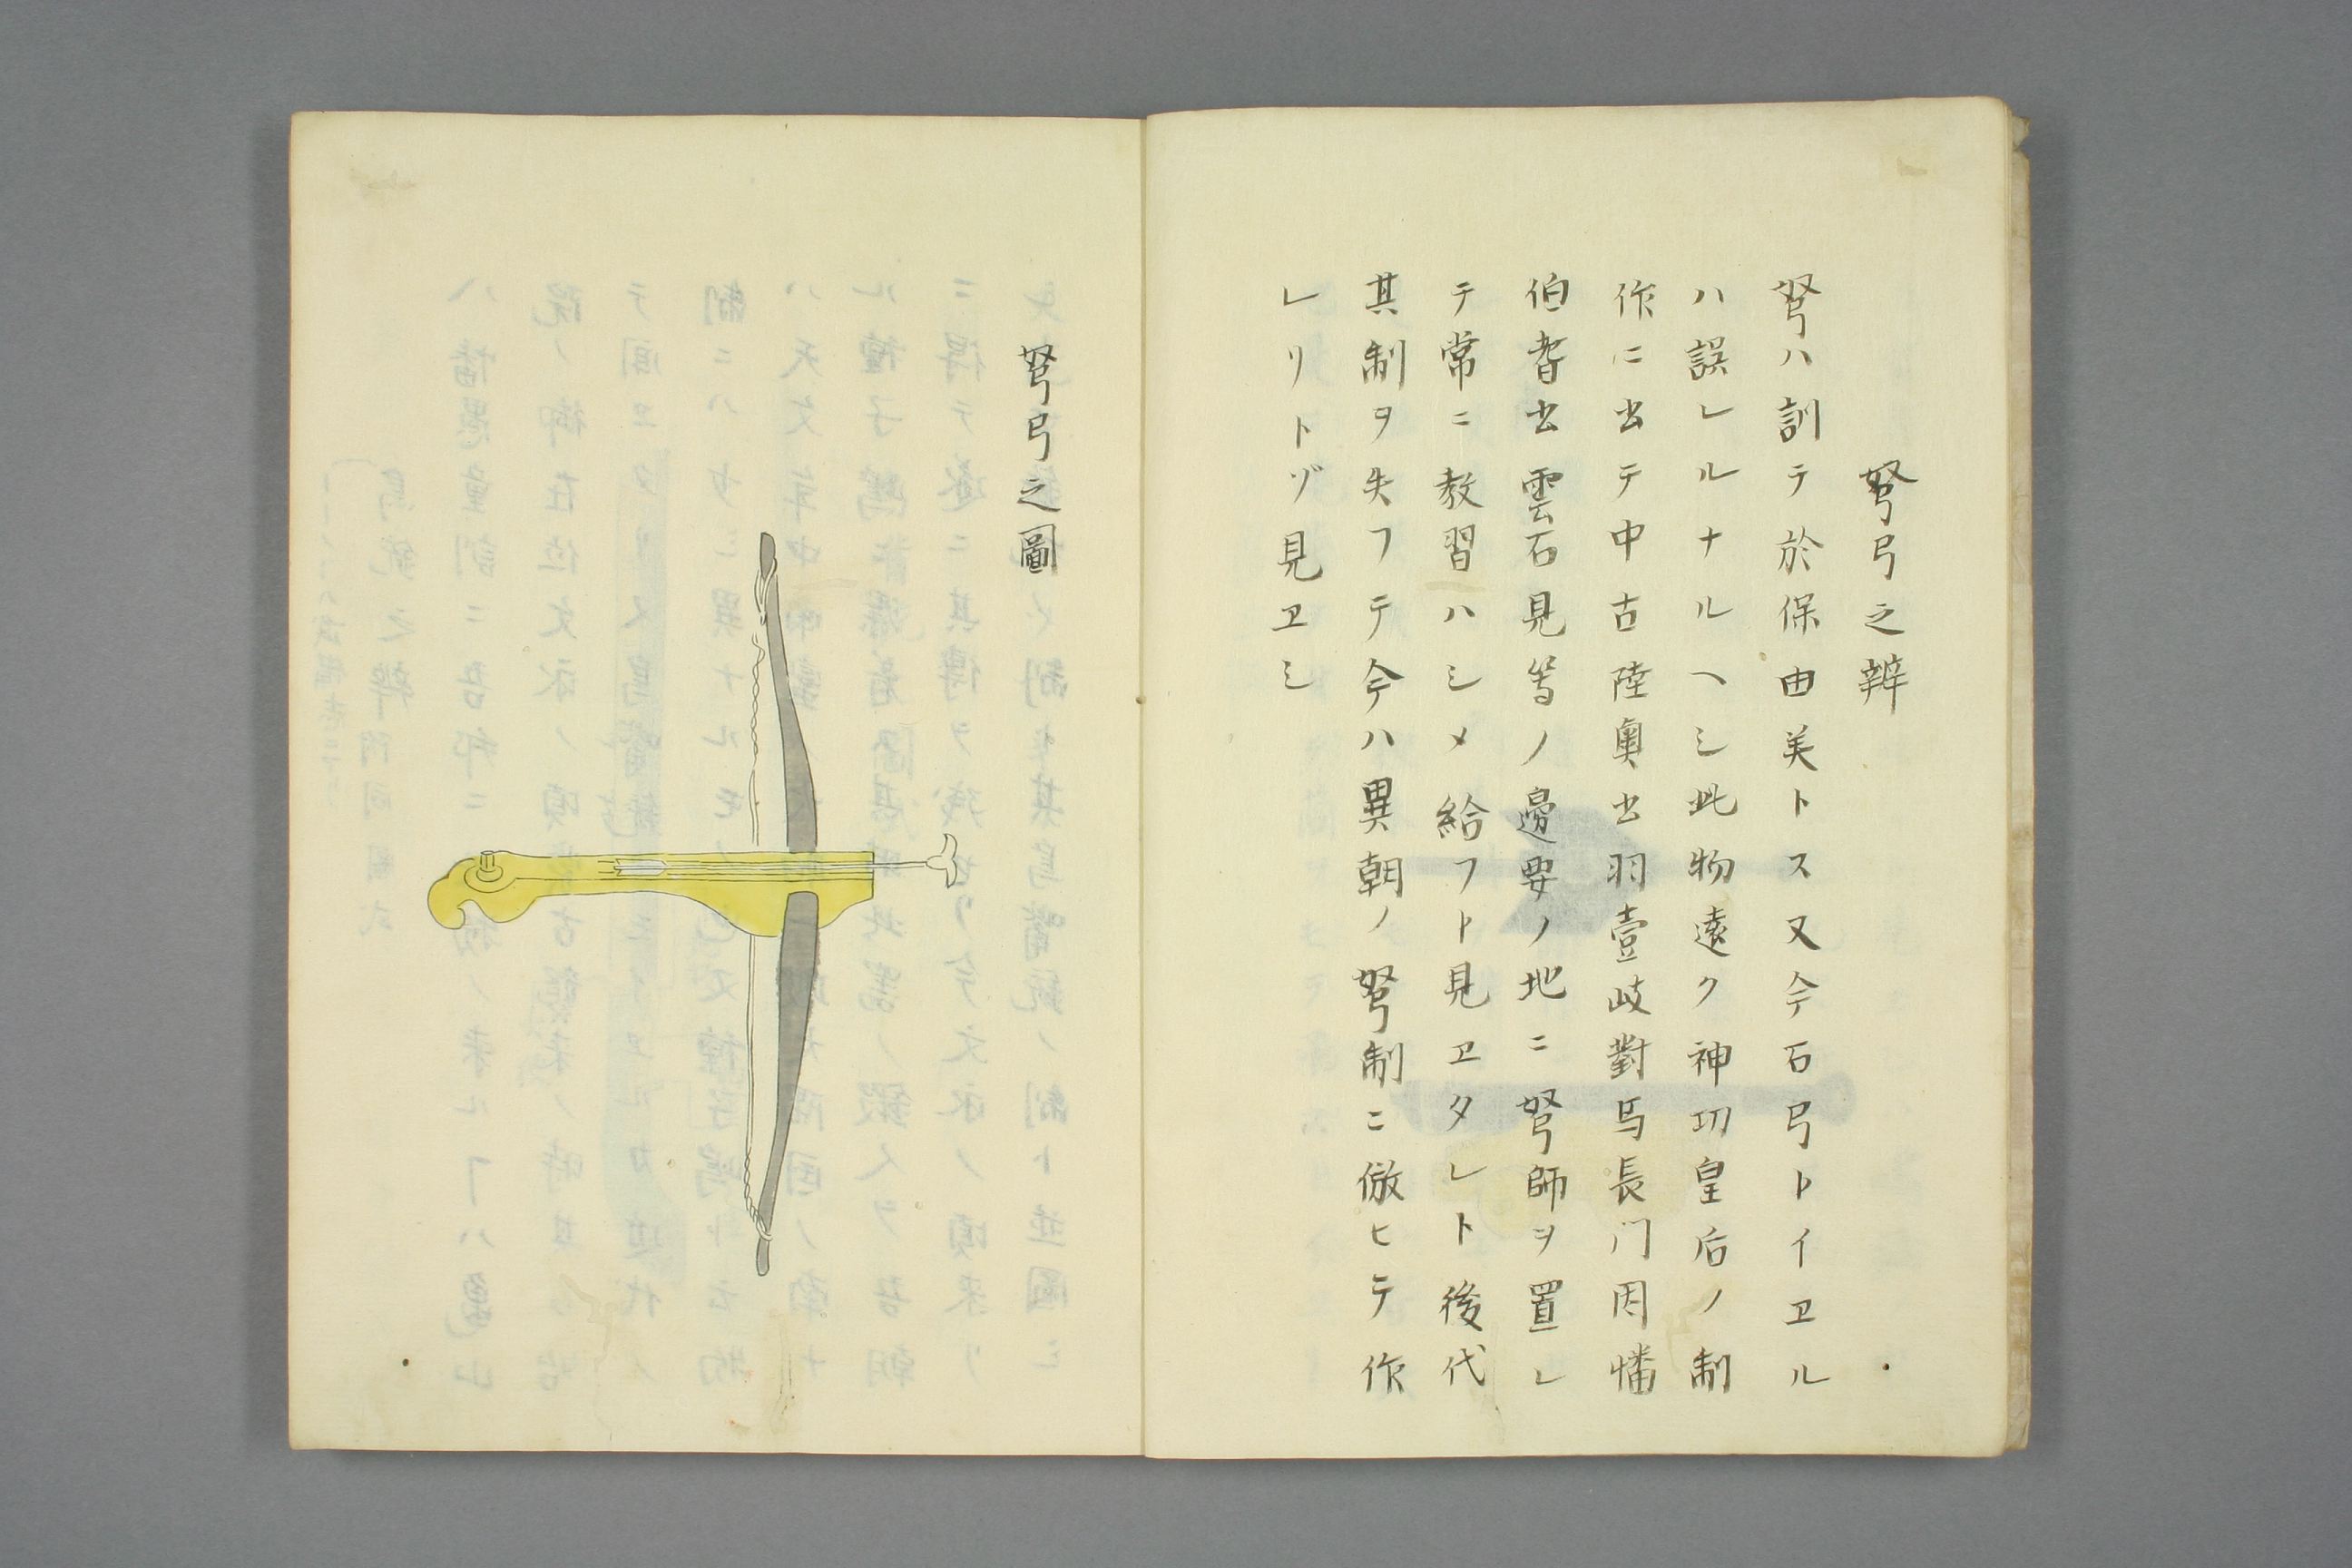 弩弓之辨
弩ハ訓テ於保由美トス又今石弓トイヱル
ハ誤レルナルヘシ此物遠ク神功皇后ノ制
作ニ出テ中古陸奧出羽壹岐對馬長门因幡
伯耆出雲石見等ノ邊要ノ地ニ弩師ヲ置レ
テ常ニ教習ハシメ給フト見ヱタレト後代
其制ヲ失フテ今ハ異朝ノ弩制ニ倣ヒテ作
レリトゾ見ヱシ
弩弓之圖